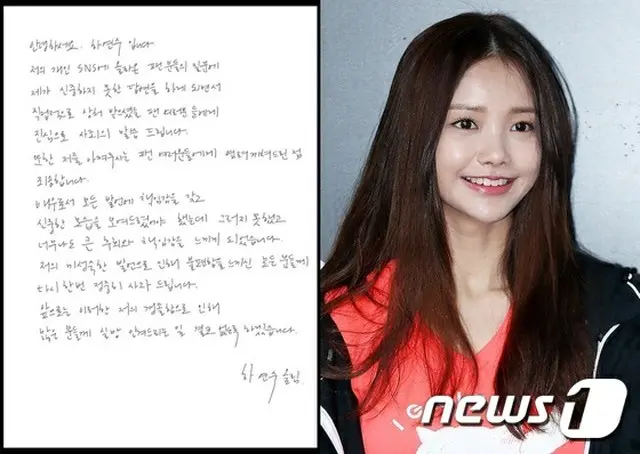 안녕하세요. 하연수 입니다.
저의 개인 SNS에 올라온 팬분들의 질문에
제가 신중하지 못한 답변을 하게 되면서
직접적으로 상처 받으셨을 팬 여러분들에게
진심으로 사죄의 말씀 드립니다.
또한 저를 아껴주시는 팬 여러분들에게 염려끼쳐드린 점
죄송합니다.
배우로서 모든 발언에 책임감을 갖고
신중한 모습을 보여드렸어야 했는데 그러지 못했고
너무나도 큰 후회와 책임감을 느끼게 되었습니다.
저의 미성숙한 발언으로 인해 불쾌함을 느끼신 모든 분들께
다시 한번 정중히 사과 드립니다.
앞으로는 이러한 저의 경솔함으로 인해
많은 분들께 실망 안겨드리는 일 결코 없도록 하겠습니다.
하연수 올림
news1